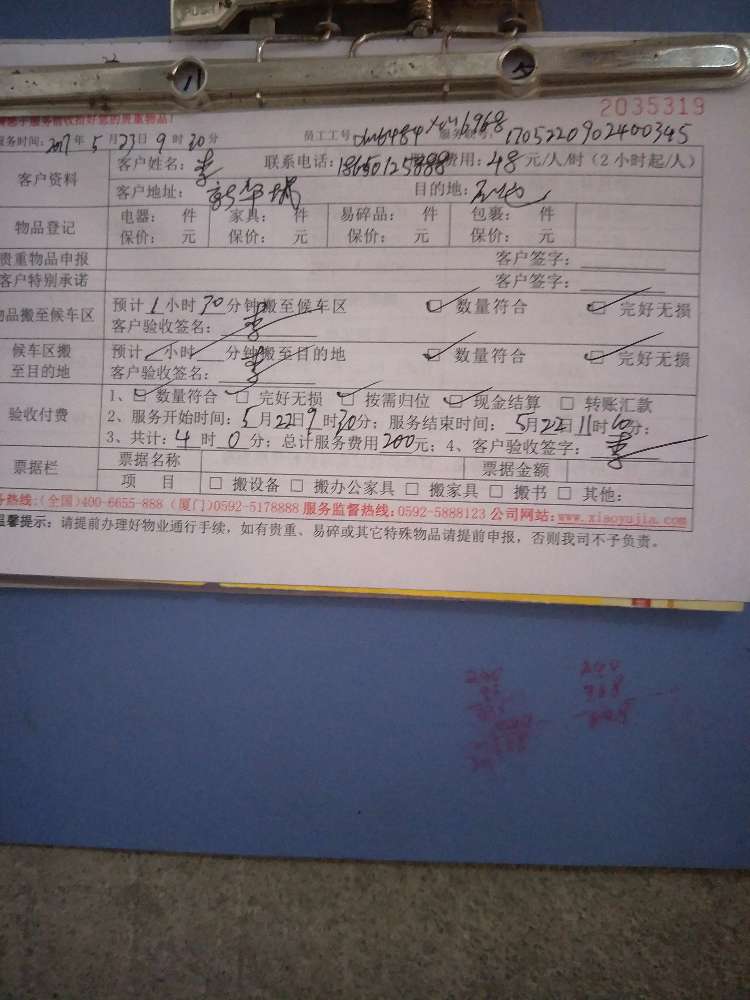 2035319
服务时间:2017年5月23日9时30分 员工工号: 服务账号:1705220902400345
客户资料 客户姓名:李 联系电话:18650125888 费用:48元/人/时(2小时起/人)
客户地址:新华城 目的地:
物品登记 电器: 件 家具: 件 易碎品: 件 包裹: 件
保价: 元 保价: 元 保价: 元 保价: 元
贵重物品申报 客户签字:
客户特别承诺 客户签字:
物品搬至候车区 预计1小时30分钟搬至候车区 数量符合 完好无损
客户验收签名:李
候车区搬至目的地 预计 小时 分钟搬至目的地 数量符合 完好无损
客户验收签名:李
验收付费 1、数量符合 完好无损 按需归位 现金结算 □ 转账汇款
2、服务开始时间:5月22日9时30分;服务结束时间:5月22日11时 分;
3、共计:4时0分;总计服务费用200元;4、客户验收签字:李
票据栏 票据名称 票据金额
项 目 □ 搬设备 □ 搬办公家具 □ 搬家具 □ 搬书 □ 其他:
务热线:(全国)400-6655-888 (厦门)0592-5178888 服务监督热线:0592-5888123 公司网站:www.xiaoyujia.com
温馨提示:请提前办理好物业通行手续,如有贵重、易碎或其它特殊物品请提前申报,否则我司不予负责。